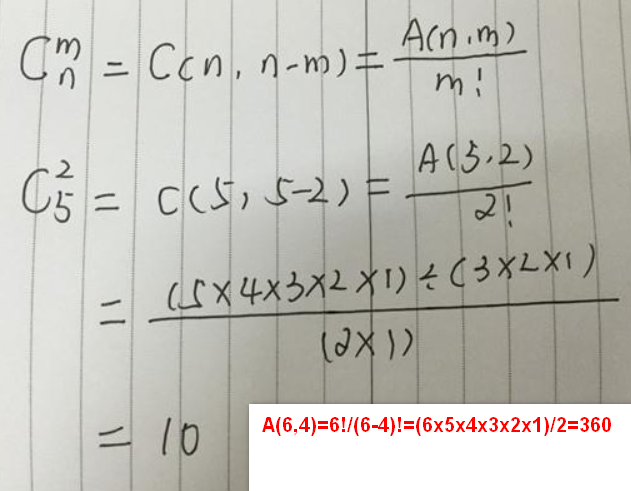 C_n^m = C(n, n-m) = A(n,m)/m!
C_5^2 = C(5, 5-2) = A(5,2)/2!
= (5×4×3×2×1)÷(3×2×1)/(2×1)
= 10
A(6,4)=6!/(6-4)!=(6x5x4x3x2x1)/2=360